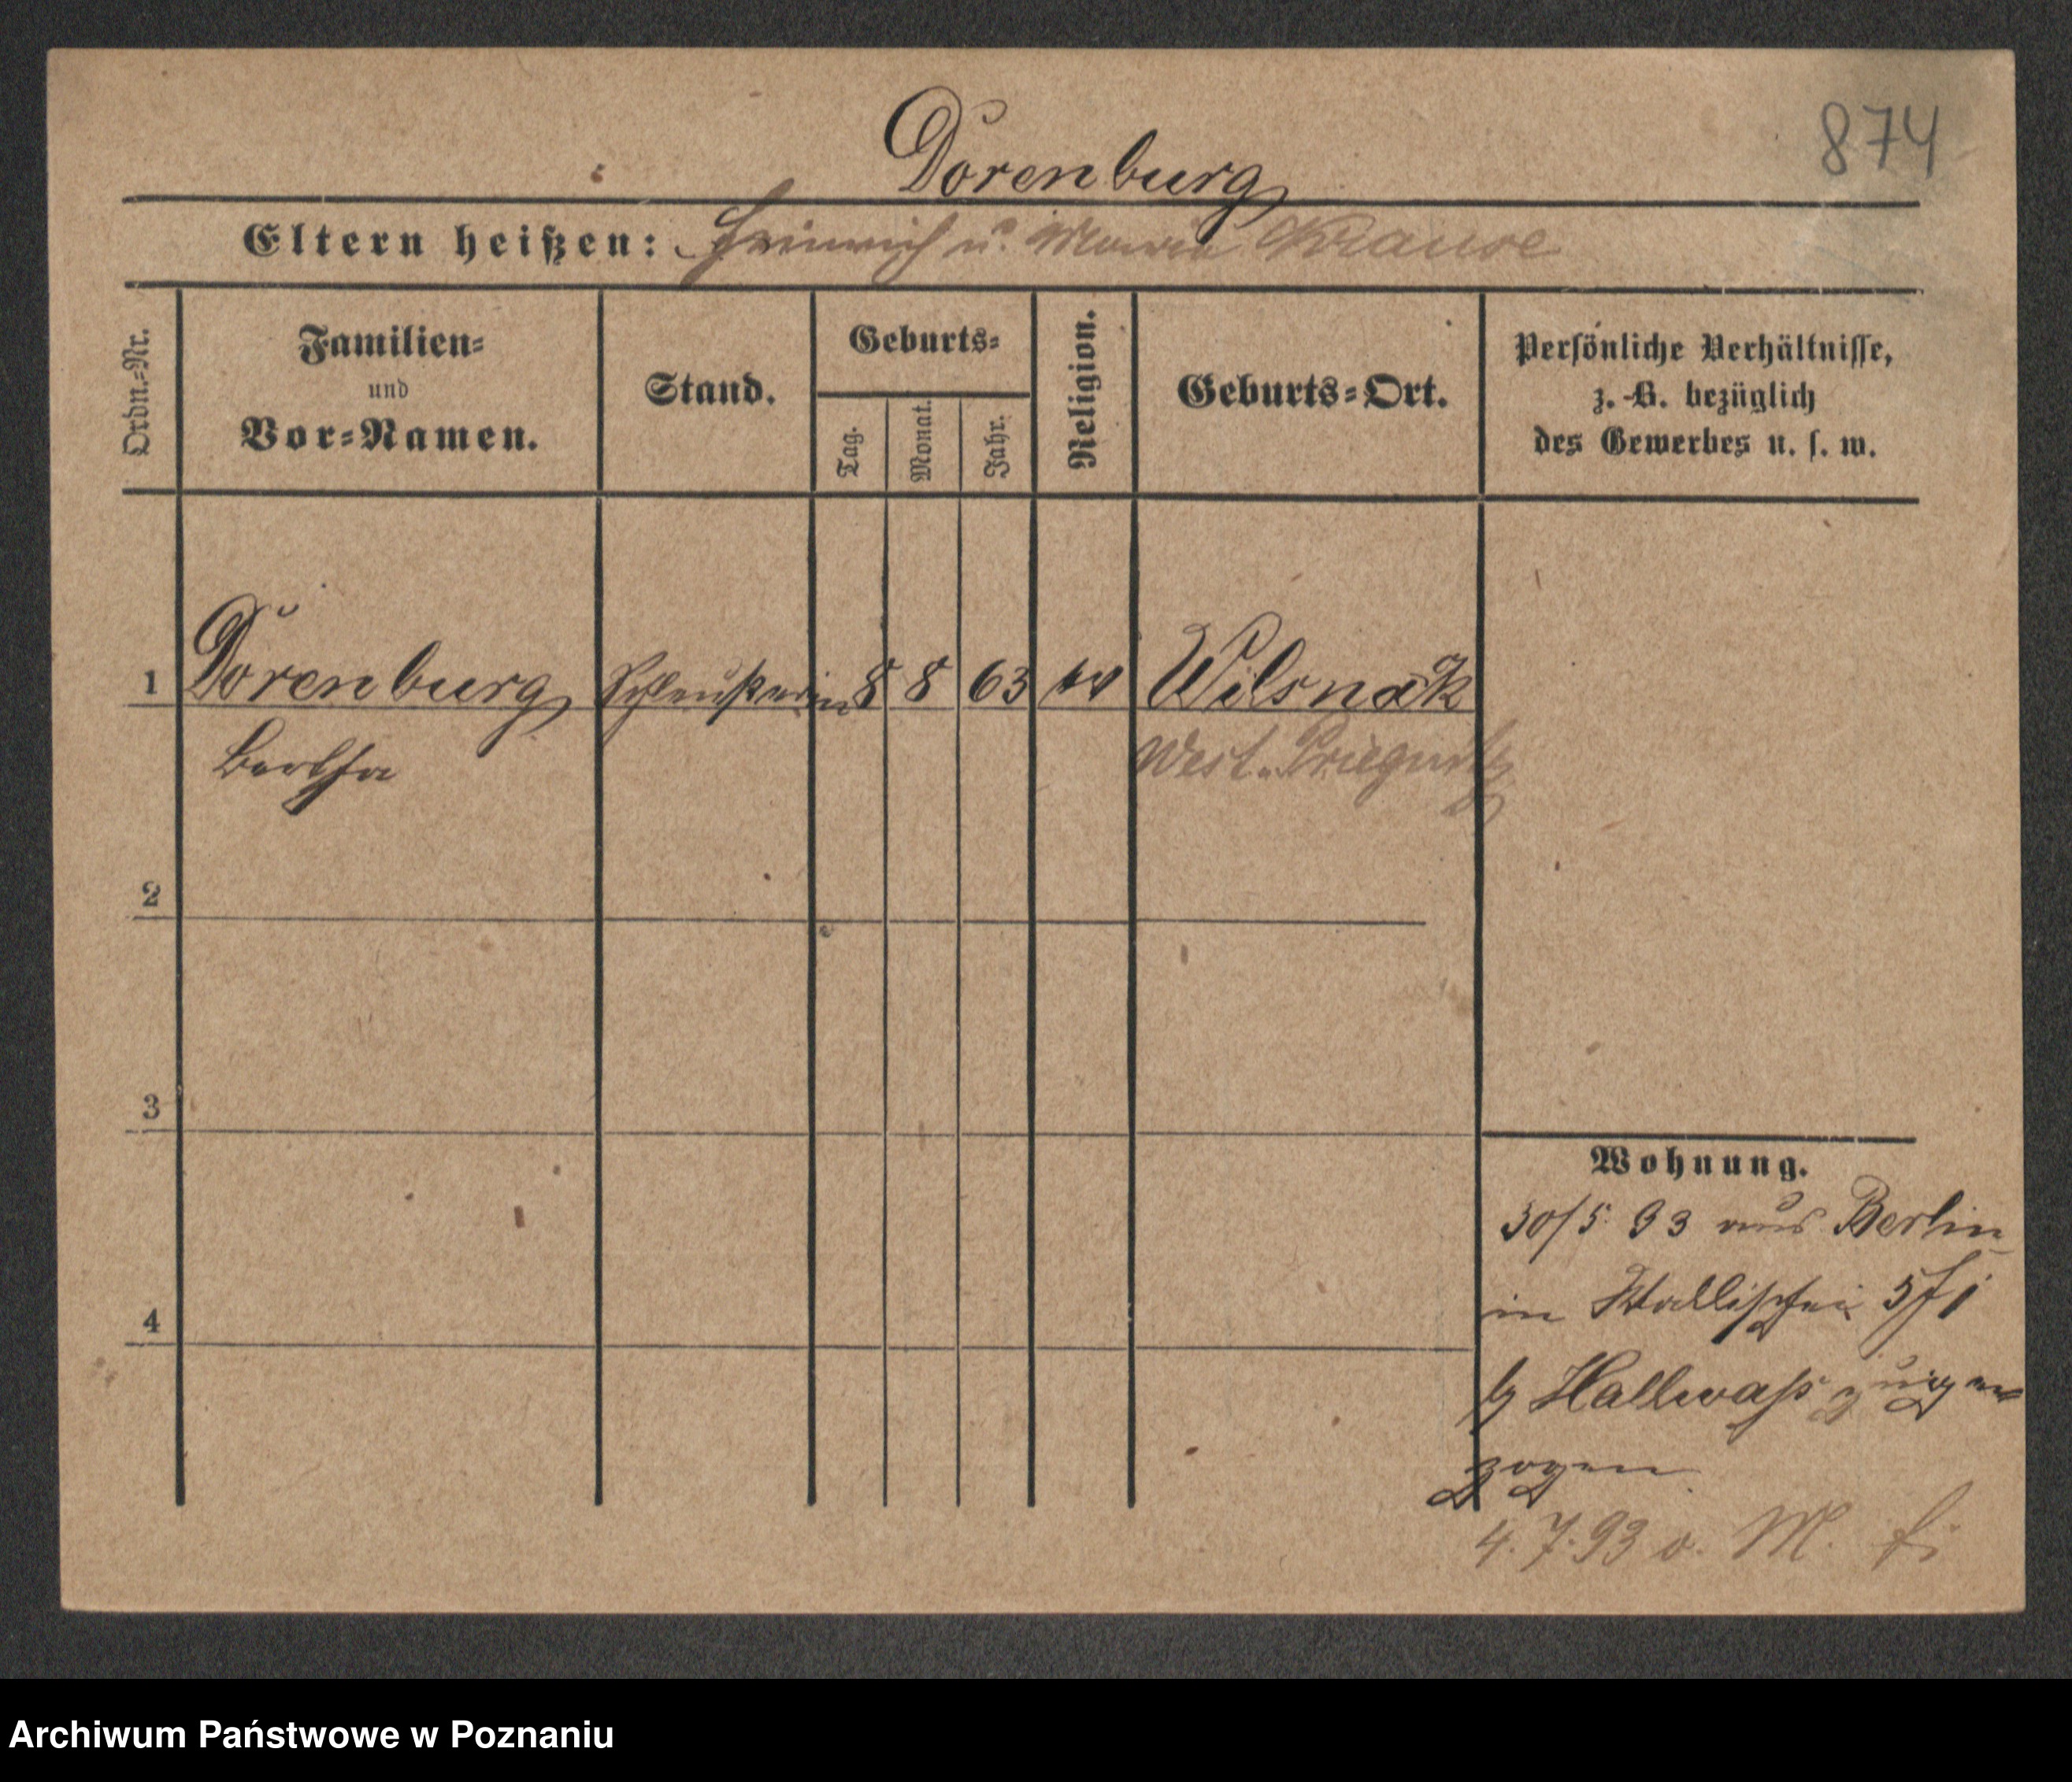 874
Dorenburg
Eltern heißen: Heinrich u. Maria Krause
Ordn.=Nr.
Familien= und Vor=Namen.
Stand.
Geburts=
Tag.
Monat.
Jahr.
Religion.
Geburts=Ort.
Persönliche Verhältnisse,
z. B. bezüglich
des Gewerbes u. s. w.
1 Dorenburg 8 8 63 ev Wilsnak
Bertha West-Priegnitz
2
3
4
Wohnung.
30/5 93 aus Berlin
in Wallischei
b/ Hallwaß zuge=
zogen
4.7.93 v. M.
Archiwum Państwowe w Poznaniu